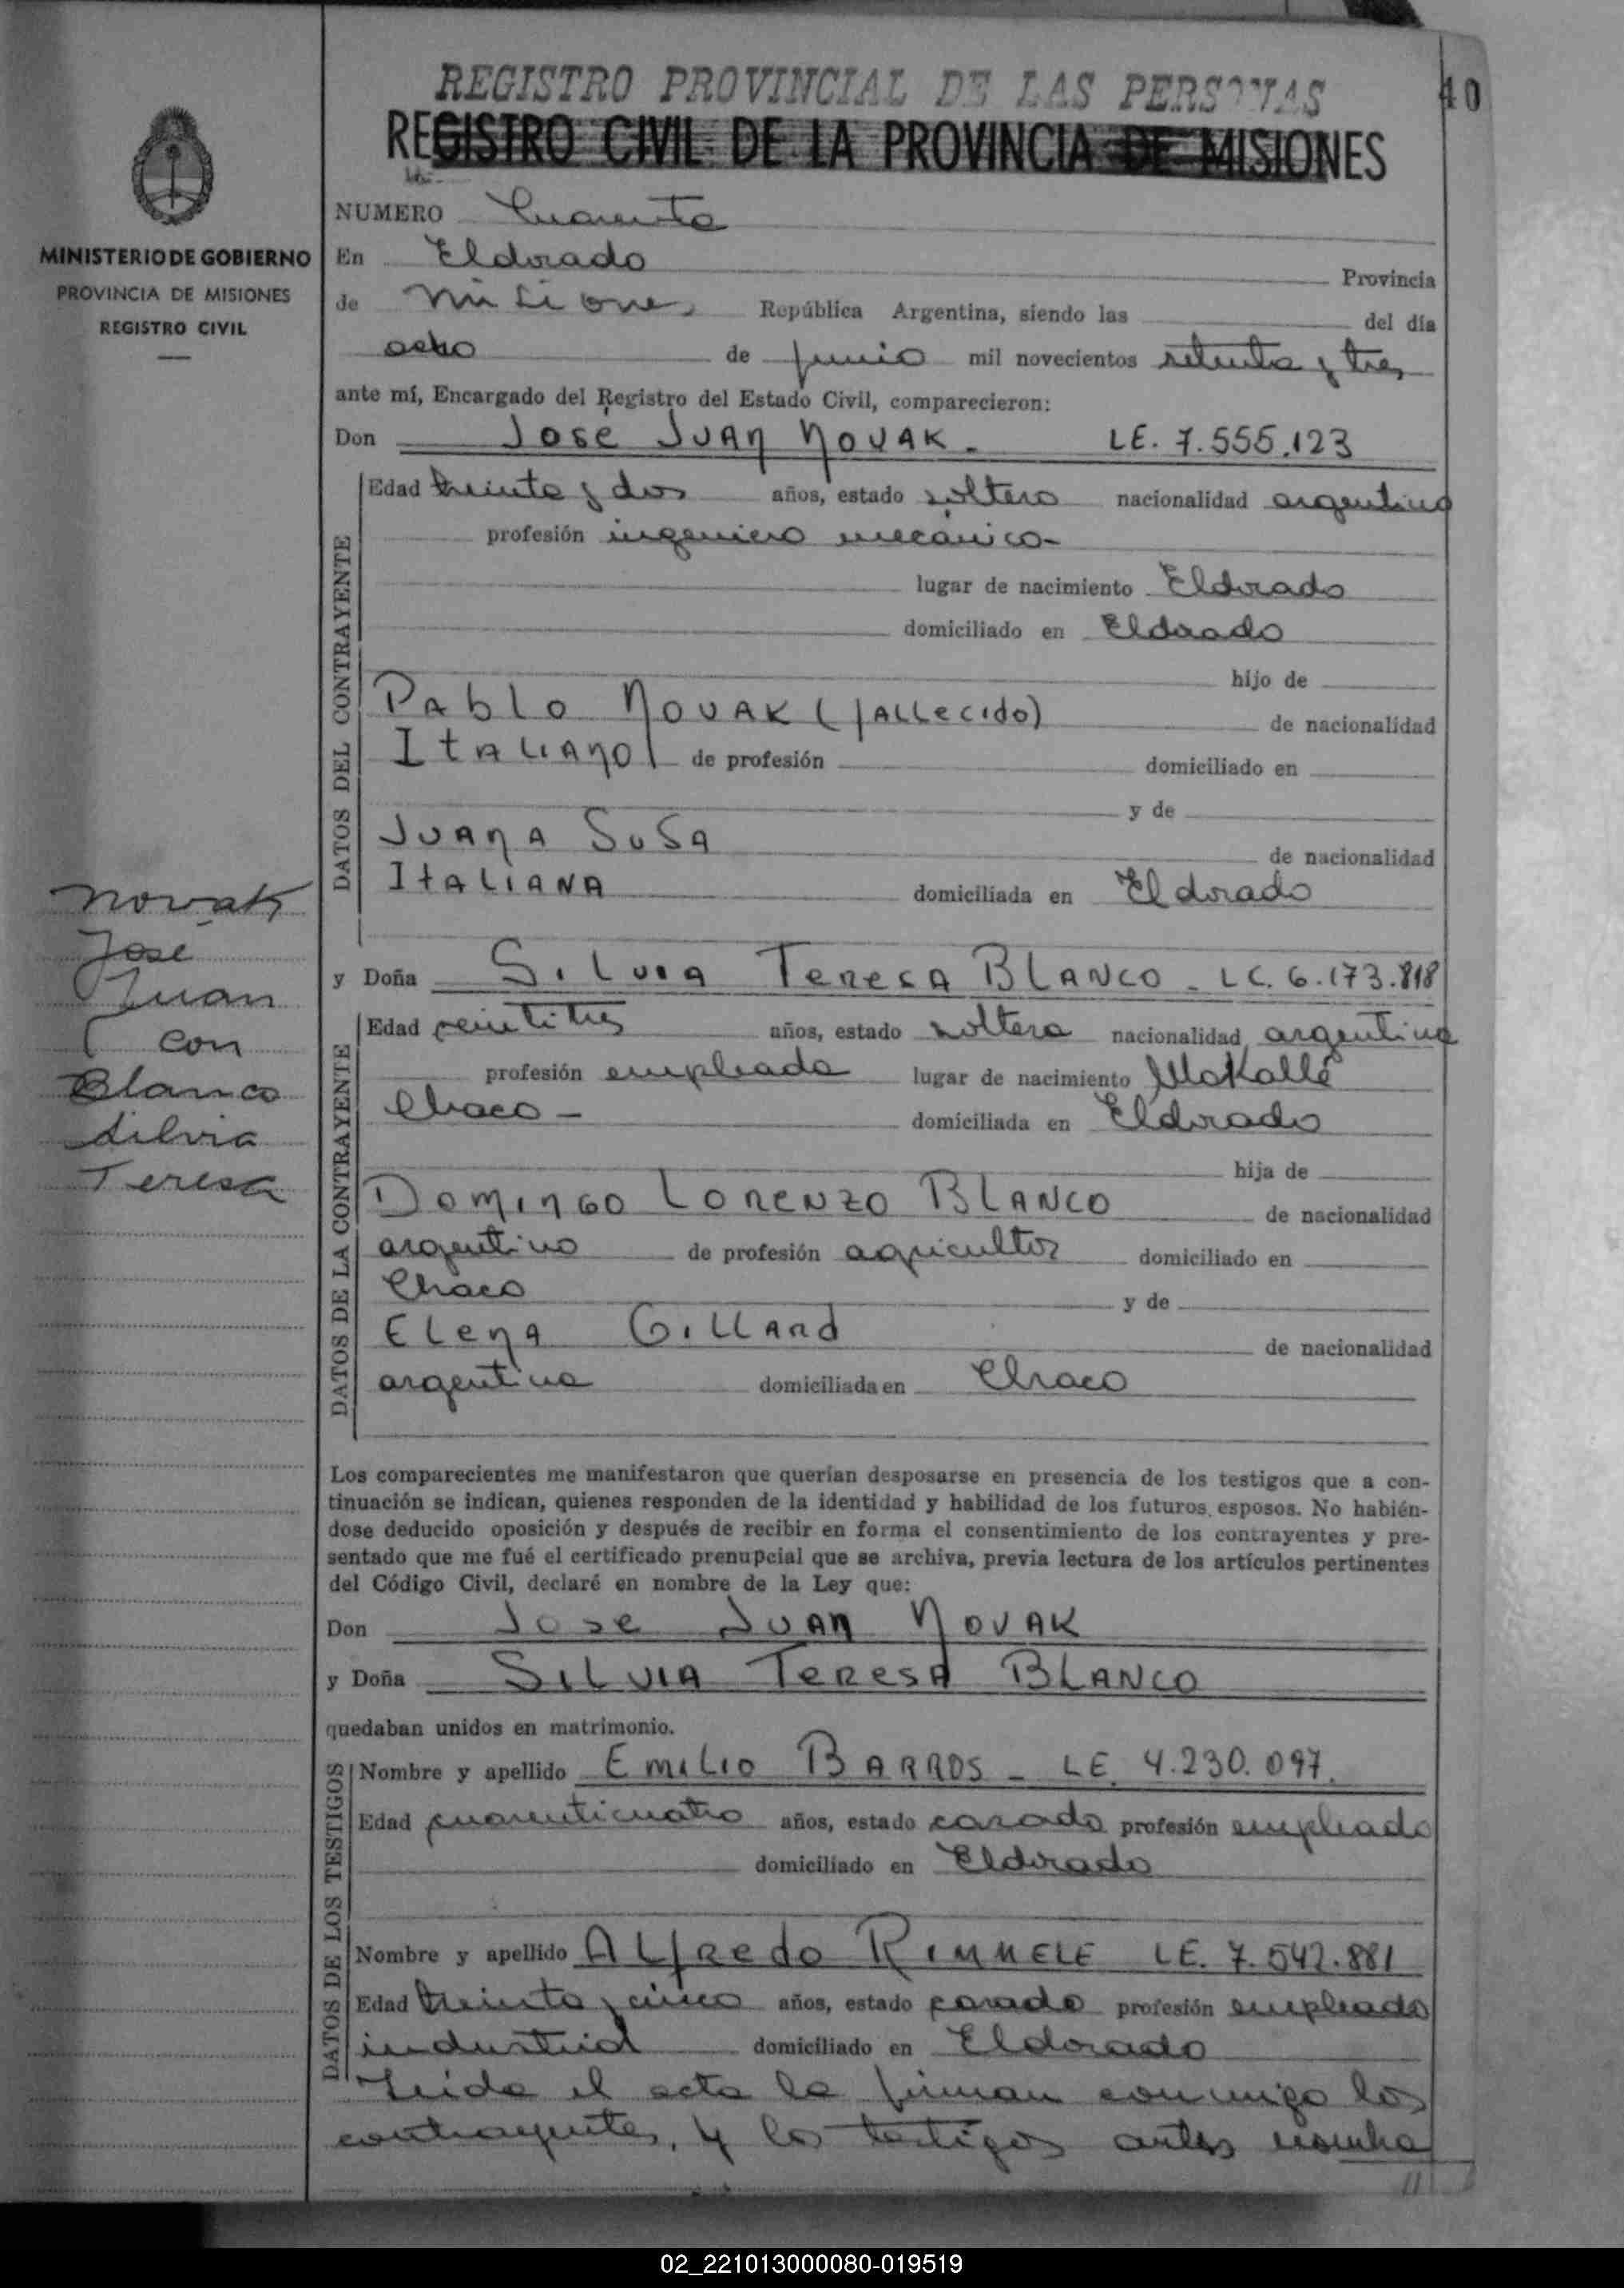 REGISTRO PROVINCIAL DE LAS PERSONAS
40
REGISTRO CIVIL DE LA PROVINCIA DE MISIONES
MINISTERIO DE GOBIERNO
PROVINCIA DE MISIONES
REGISTRO CIVIL
NUMERO Cuarenta
En Eldorado Provincia
de Misiones República Argentina, siendo las del día
ocho de junio mil novecientos setenta y tres
ante mí, Encargado del Registro del Estado Civil, comparecieron:
Don Jose Juan Novak - LE. 7.555.123
DATOS DEL CONTRAYENTE
Edad treinta y dos años, estado soltero nacionalidad argentino
profesión ingeniero mecánico-
lugar de nacimiento Eldorado
domiciliado en Eldorado
hijo de
Pablo Novak (fallecido) de nacionalidad
Italiano de profesión domiciliado en
y de
Juana Susa de nacionalidad
Italiana domiciliada en Eldorado
Novak
José
Juan
con
Blanco
Silvia
Teresa
y Doña Silvia Teresa Blanco - LC. 6.173.818
DATOS DE LA CONTRAYENTE
Edad veintitres años, estado soltera nacionalidad argentina
profesión empleada lugar de nacimiento Makallé
Chaco - domiciliada en Eldorado
hija de
Domingo Lorenzo Blanco de nacionalidad
argentino de profesión agricultor domiciliado en
Chaco y de
Elena Gilland de nacionalidad
argentina domiciliada en Chaco
Los comparecientes me manifestaron que querían desposarse en presencia de los testigos que a con-
tinuación se indican, quienes responden de la identidad y habilidad de los futuros esposos. No habién-
dose deducido oposición y después de recibir en forma el consentimiento de los contrayentes y pre-
sentado que me fué el certificado prenupcial que se archiva, previa lectura de los artículos pertinentes
del Código Civil, declaré en nombre de la Ley que:
Don Jose Juan Novak
y Doña Silvia Teresa Blanco
quedaban unidos en matrimonio.
DATOS DE LOS TESTIGOS
Nombre y apellido Emilio Barros - LE. 4.230.097.
Edad cuarenticuatro años, estado casado profesión empleado
domiciliado en Eldorado
Nombre y apellido Alfredo Rimmele LE. 7.542.881
Edad treinta y cinco años, estado casado profesión empleado
industrial domiciliado en Eldorado
Leida el acta la firman conmigo los
contrayentes, y los testigos antes nombra
02_221013000080-019519